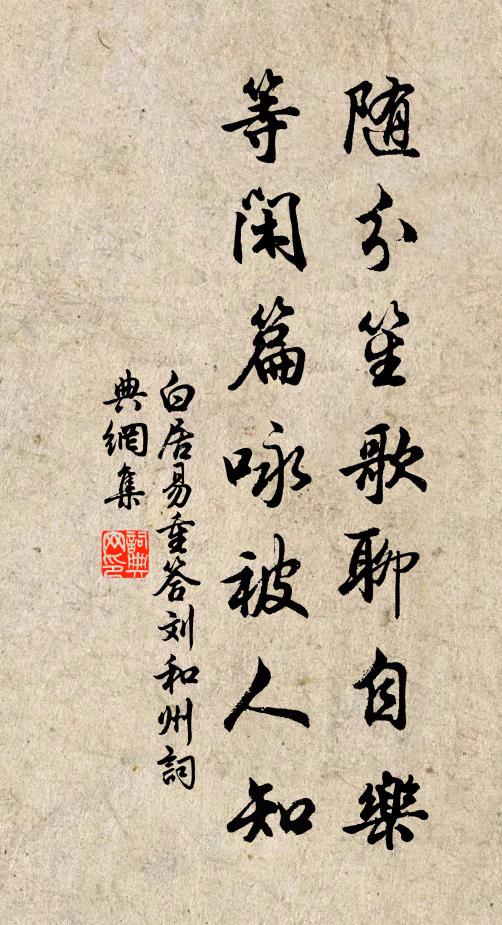 随分笙歌聊自樂
等閑篇咏被人知
白居易重答刘和州詞
典網集
詞典网印